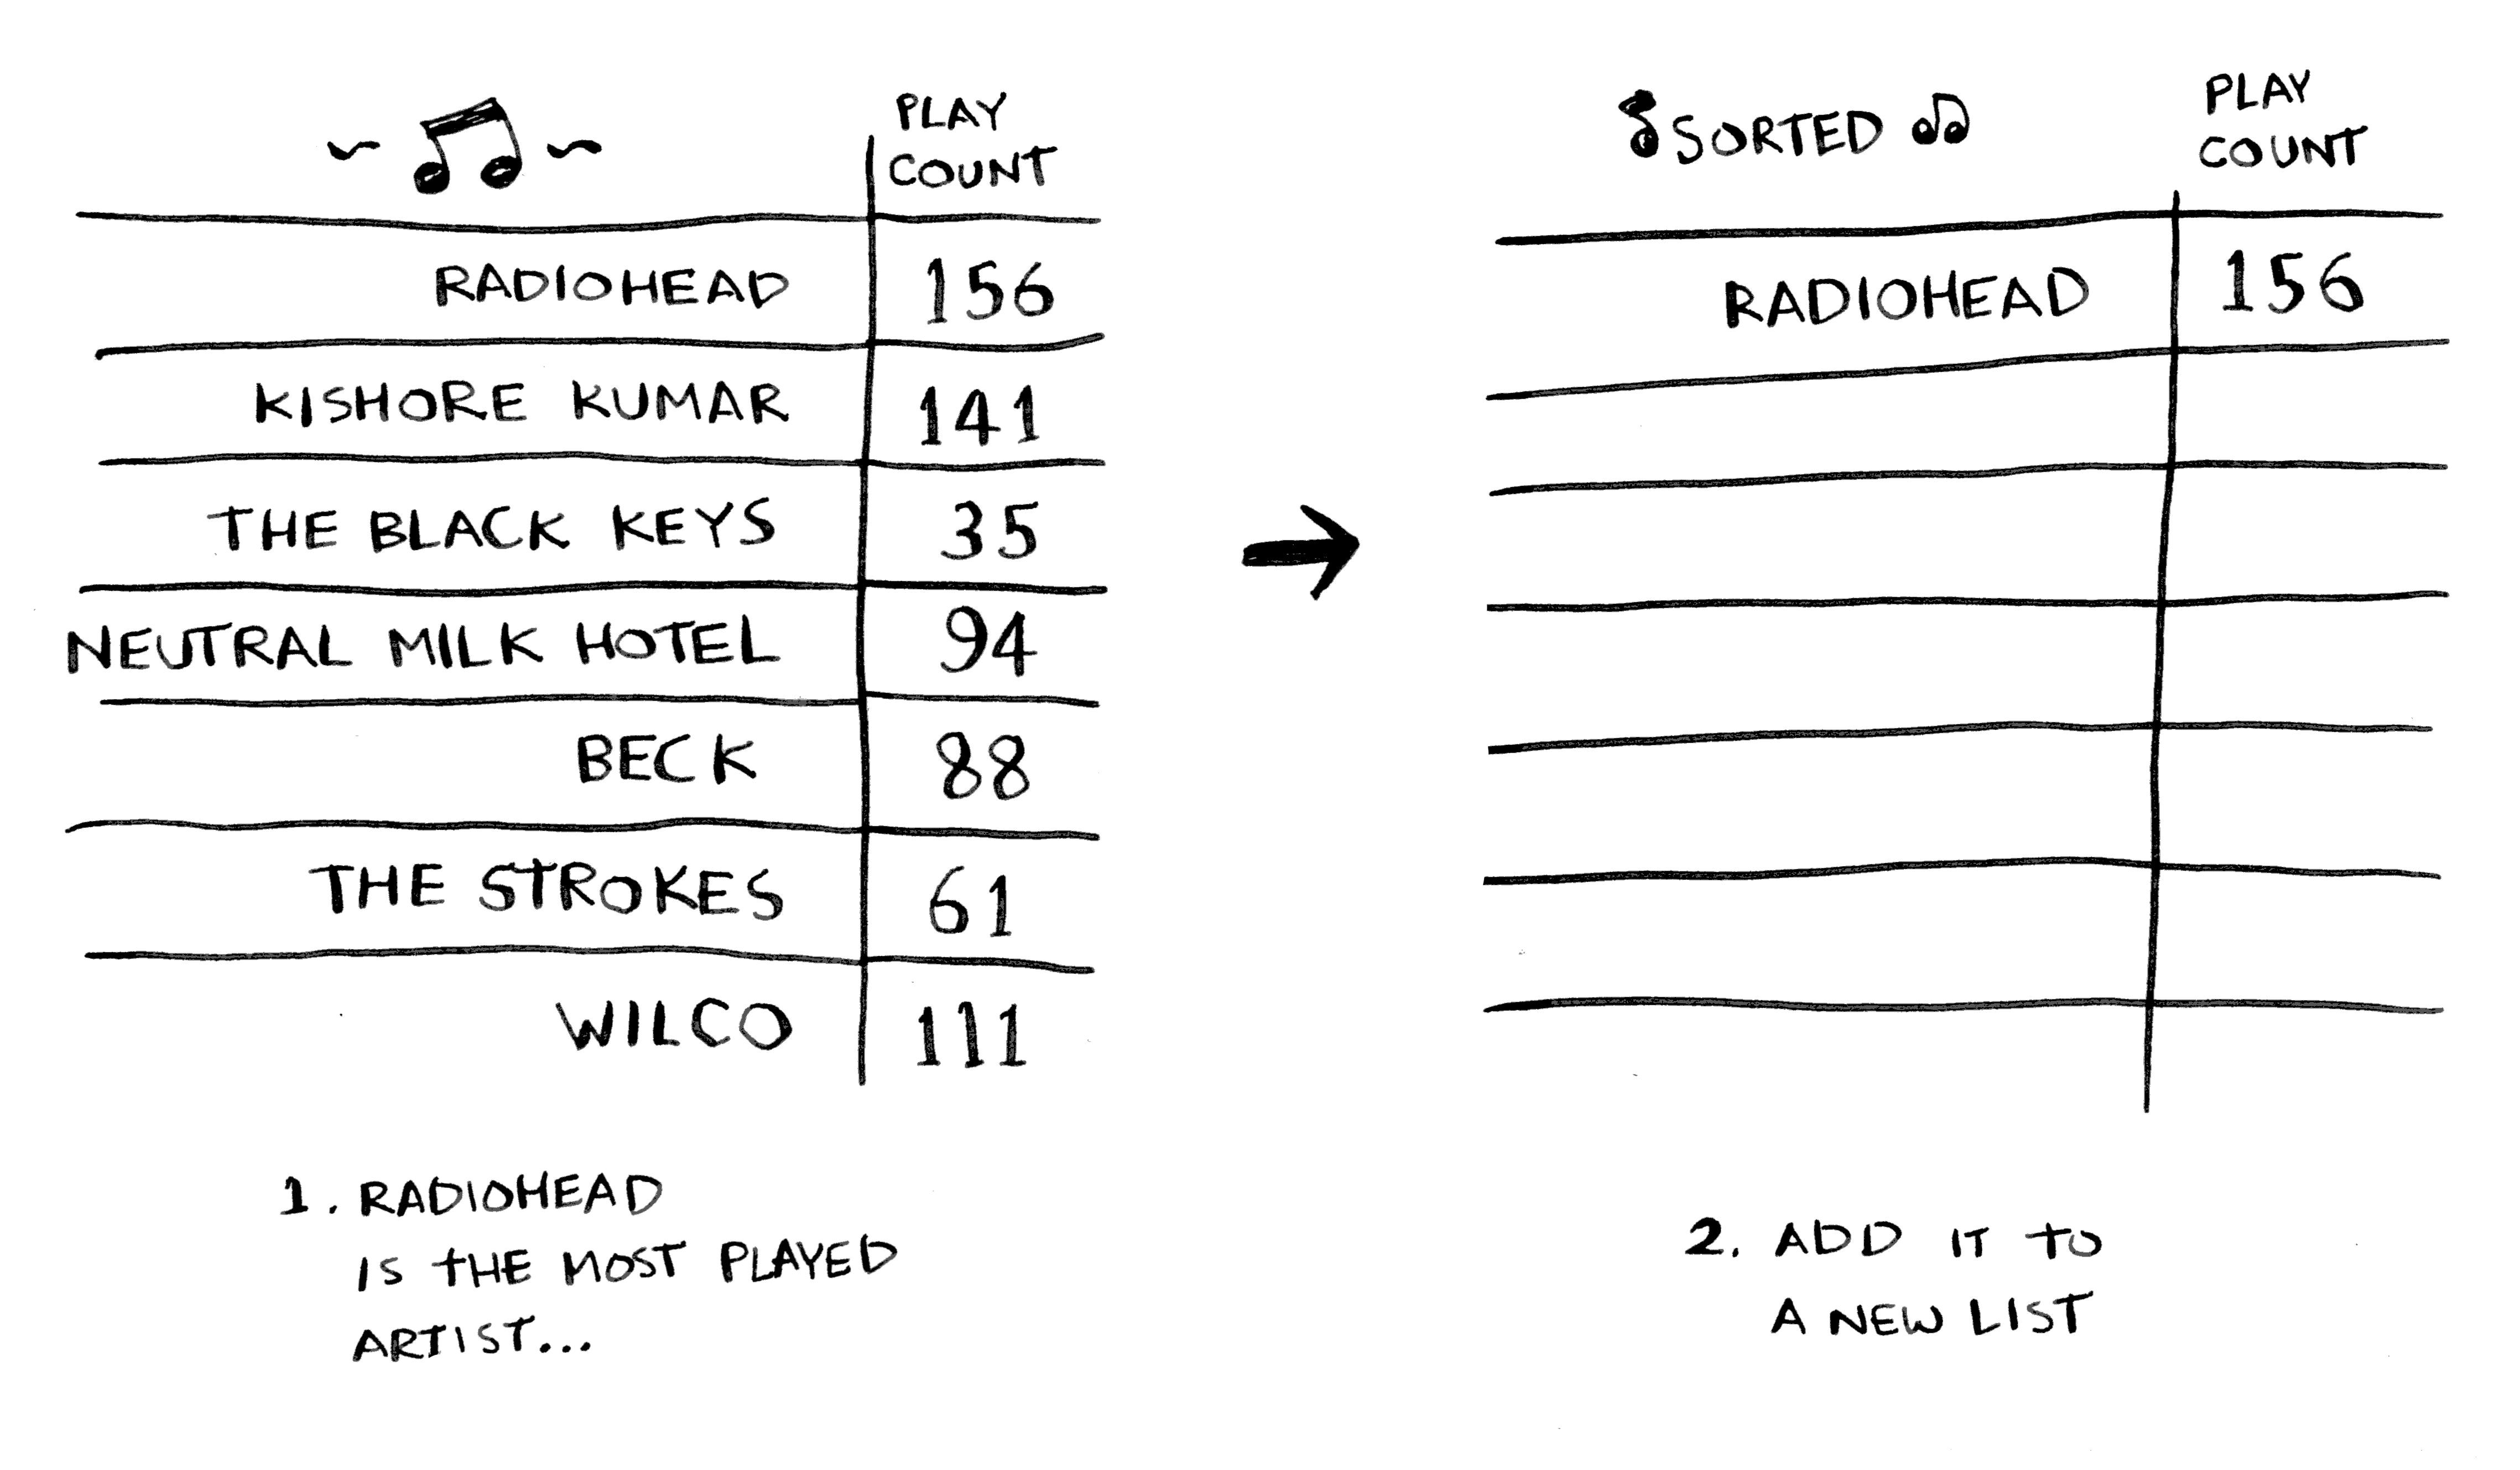 PLAY
COUNT
RADIOHEAD 156
KISHORE KUMAR 141
THE BLACK KEYS 35
NEUTRAL MILK HOTEL 94
BECK 88
THE STROKES 61
WILCO 111
1. RADIOHEAD
IS THE MOST PLAYED
ARTIST...
SORTED
PLAY
COUNT
RADIOHEAD 156
2. ADD IT TO
A NEW LIST